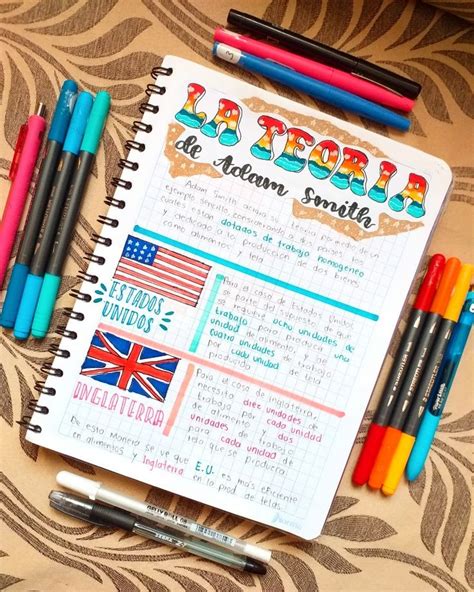 LA TEORIA
de Adam Smith
Adam Smith, aclara su teoria por medio de un
ejemplo sencillo, considerando a dos países los
cuales están dotados de trabajo homogéneo
y dedicado a la producción de dos bienes,
como alimentos y tela.
ESTADOS
UNIDOS
Para el caso de Estados Unidos
se parte del supuesto de que
se requiere ocho unidades de
trabajo para producir una
unidad de alimento y
cuatro unidades de trabajo
por cada unidad
de tela
INGLATERRA
Para el caso de Inglaterra,
necesita diez unidades de
trabajo por cada unidad
de alimento y dos
unidades de trabajo
para cada unidad
de tela que se
produzca.
De esta Manera se ve que E.U. es más eficiente
en alimentos y Inglaterra en la prod. de telas.